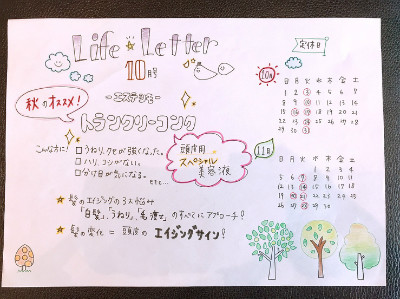 Life Letter
10月号
定休日
秋のオススメ!
-エステシモ-
トランクリーコンク
頭皮用
スペシャル
美容液
こんな方に!
□うねり、クセが強くなった。
□ハリ、コシがない。
□分け目が気になる。
etc...
髪のエイジングの3大悩み
「白髪」、うねり」、「毛痩せ」のすべてにアプローチ!
髪の変化 = 頭皮のエイジングサイン!
10月
日 月 火 水 木 金 土
1 2 3 4 5 6 7
8 9 10 11 12 13 14
15 16 17 18 19 20 21
22 23 24 25 26 27 28
29 30 31
11月
日 月 火 水 木 金 土
1 2 3 4
5 6 7 8 9 10 11
12 13 14 15 16 17 18
19 20 21 22 23 24 25
26 27 28 29 30